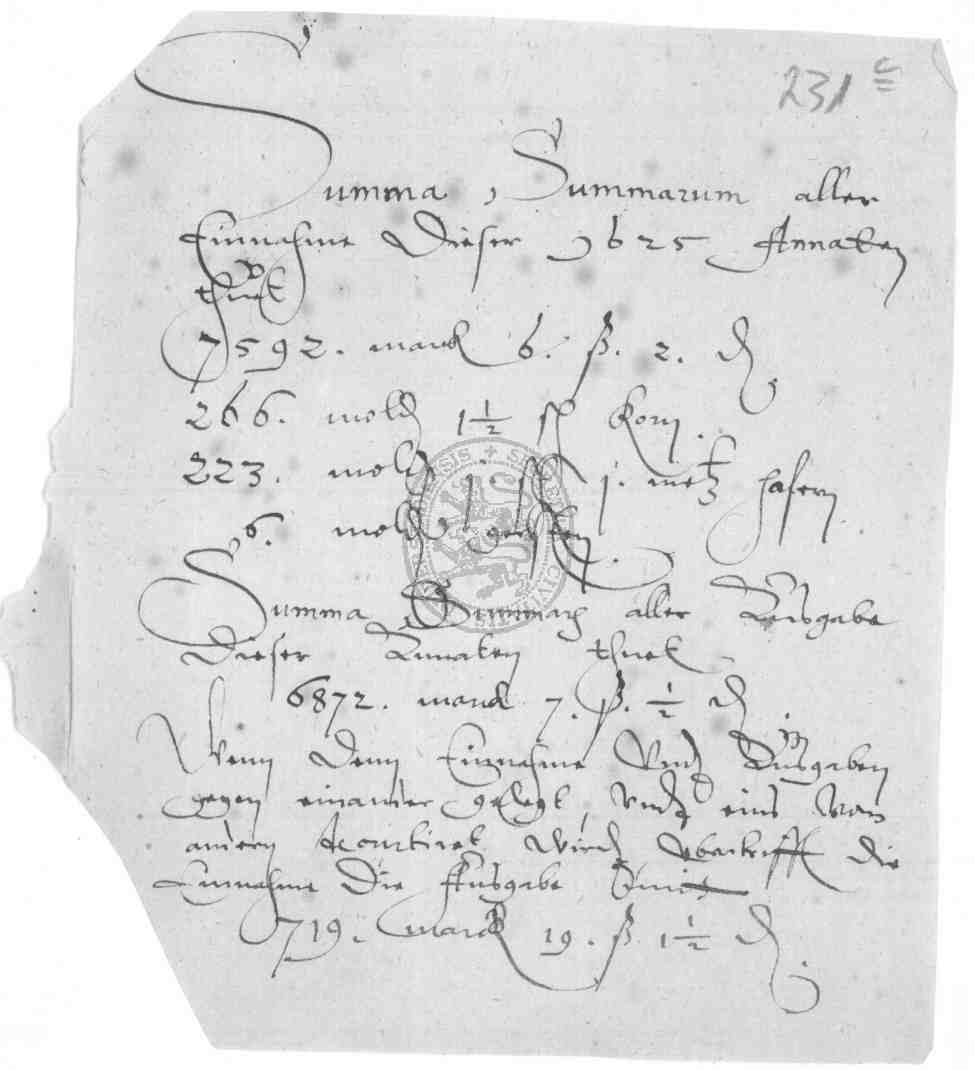 231 c
Summa Summarum aller
Einnahme Dieser 1625 Annaten
thuet
7592. marck 6. ß. 2. ₰
266. mold 1 1/2 sch Korn.
223. mold 1. sch 1. metz hafern
6. mold gersten.
Summa Summarum aller Ausgabe
Dieser Annaten thuet
6872. marck 7. ß. 1/2 ₰.
Wenn Denn Einnahme Vnd Ausgaben
gegen einander gelegt, vnd eins von
andern decurtiret wird, vbertrifft die
Einnahme Die Ausgabe mit
719. marck 19. ß. 1 1/2 ₰.